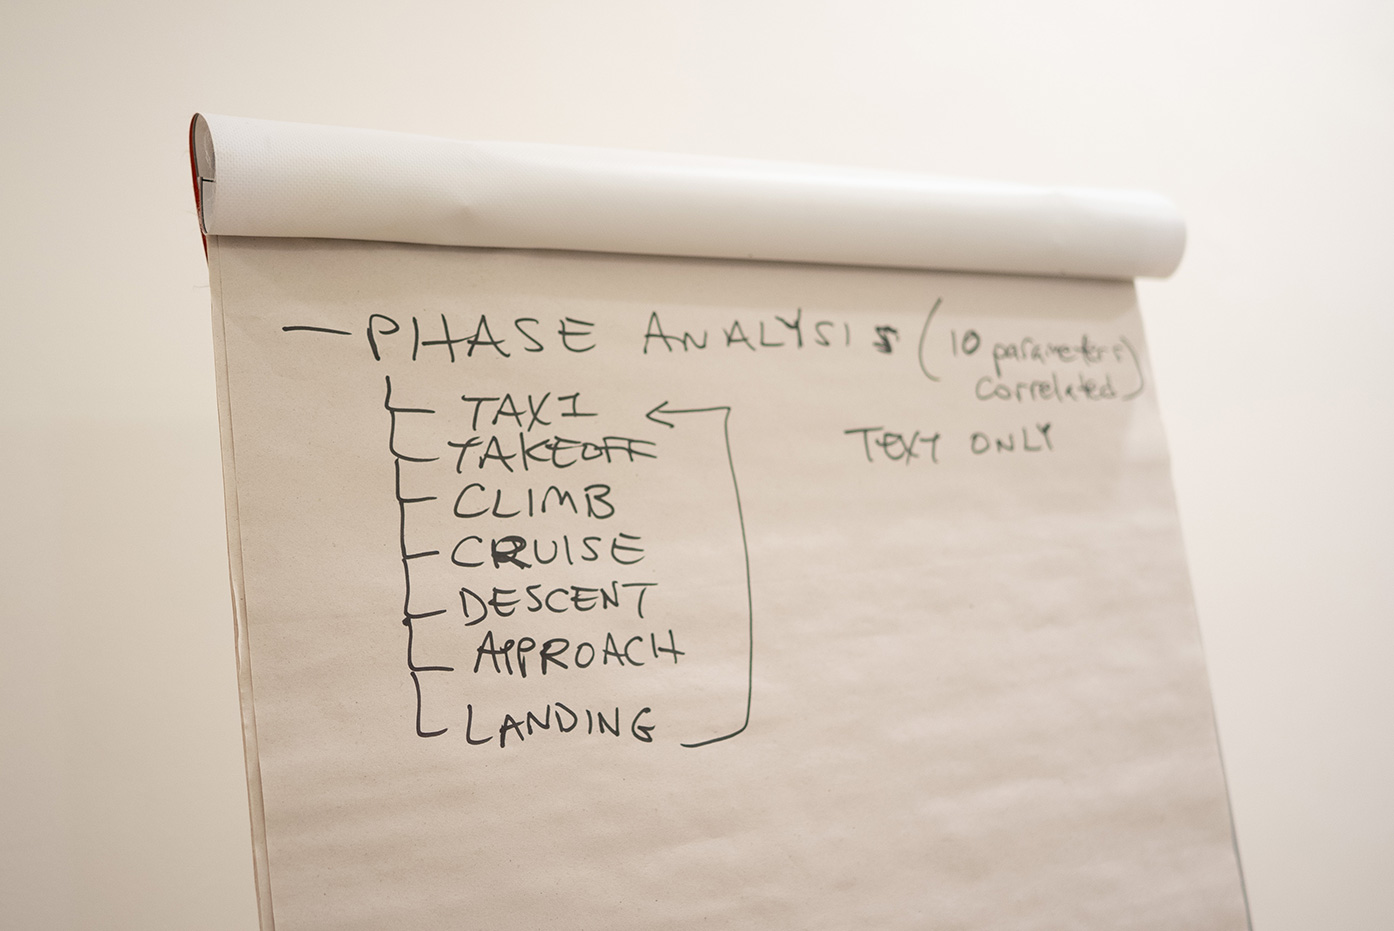 — PHASE ANALYSIS (10 parameters
correlated)
TAXI
TEXT ONLY
TAKEOFF
CLIMB
CRUISE
DESCENT
APPROACH
LANDING